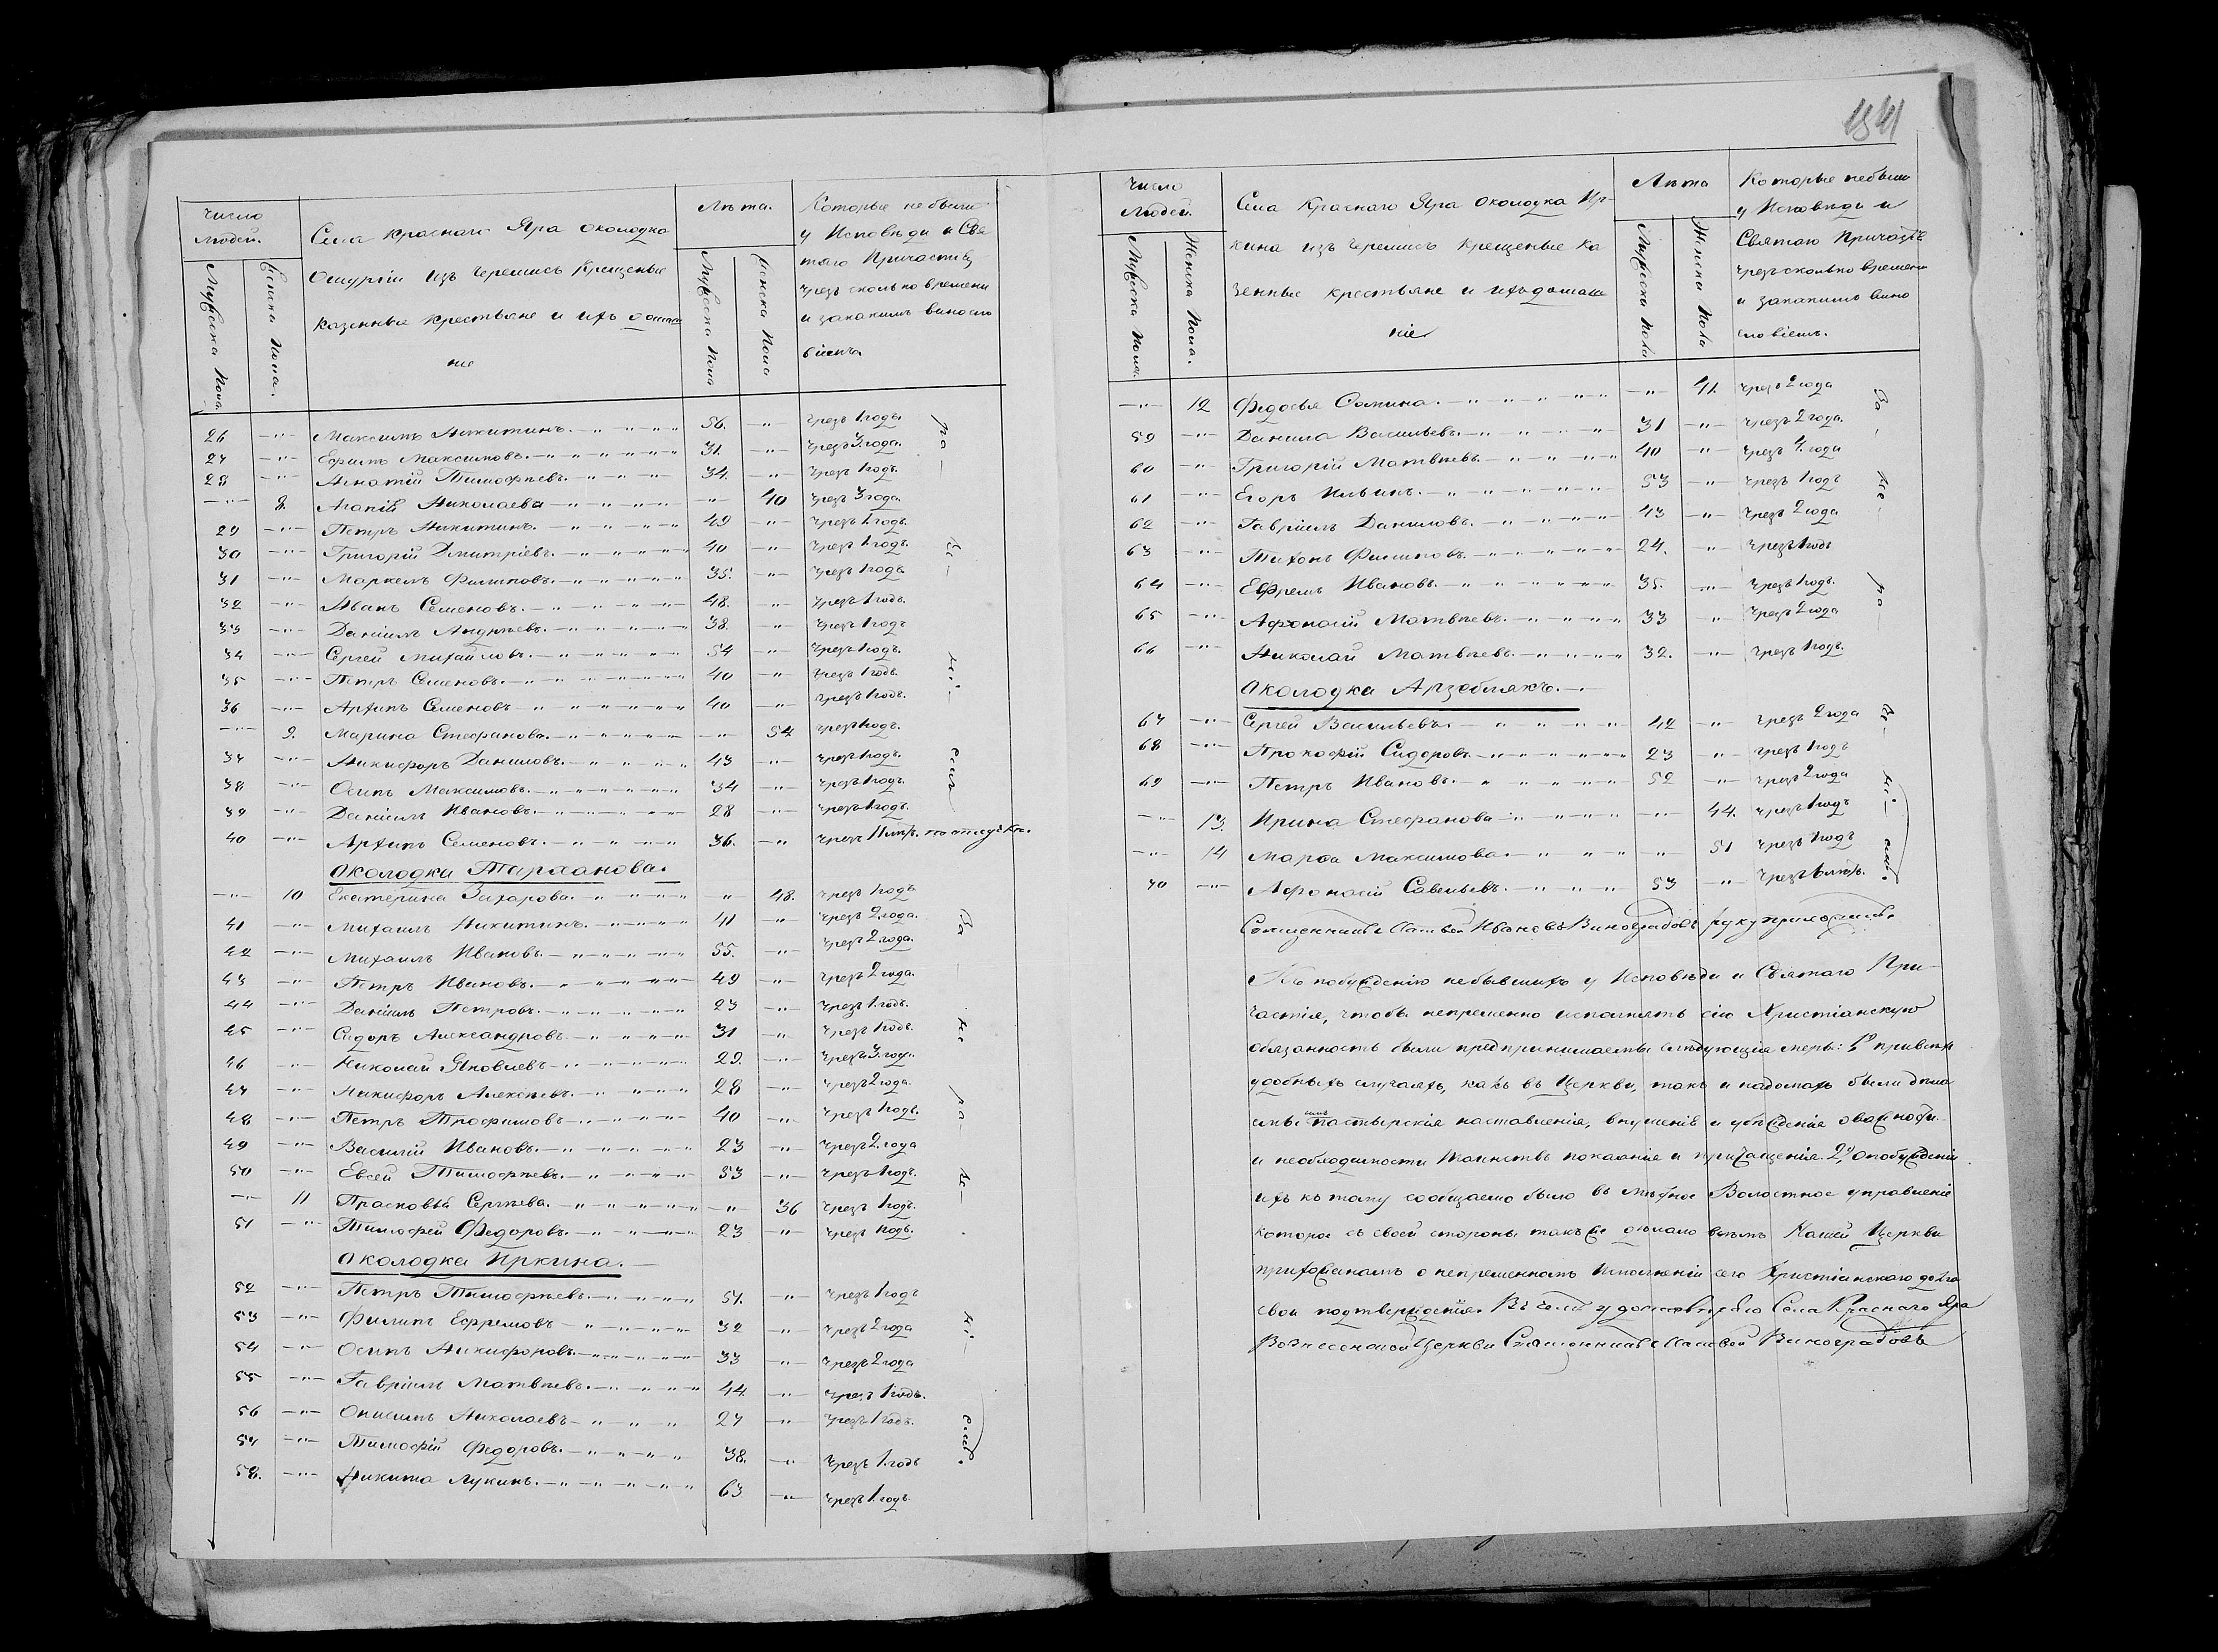 Число
Людей.
Мужеска Пола.
Женска Пола.
Села Краснаго Яра околодка
изъ Черемисъ Крещеные
казенные крестьяне и ихъ домашн
ніе
Лѣта.
Мужеска Пола
Женска Пола
Которые небыли
у Исповѣди и Свя
таго Причастія
чрезъ сколько времени
и закакимъ винословіемъ
26 —"— Максимъ Никитинъ. 56. —"— чрезъ 1 годъ.
27 —"— Ефимъ Максимовъ. 31. —"— чрезъ 3 года.
28 —"— Игнатій Тимофѣевъ. 34. —"— чрезъ 1 годъ.
—"— 8. Агапія Николаева —"— 40 чрезъ 3 года.
29 —"— Петръ Никитинъ. 49 —"— чрезъ 1 годъ.
30 —"— Григорій Дмитріевъ. 40 —"— чрезъ 1 годъ.
31 —"— Маркелъ Филиповъ. 35. —"— чрезъ 1 годъ
32 —"— Иванъ Семеновъ. 48. —"— чрезъ 1 годъ.
33 —"— Даніилъ Андреевъ. 38. —"— чрезъ 1 годъ
34 —"— Сергей Михайловъ. 54 —"— чрезъ 1 годъ.
35 —"— Петръ Семеновъ. 40 —"— чрезъ 1 годъ.
36 —"— Архипъ Семеновъ 40 —"— чрезъ 1 годъ.
—"— 9. Марина Стефанова. —"— 54 чрезъ 1 годъ.
37 —"— Никифоръ Даниловъ. 43 —"— чрезъ 1 годъ.
38 —"— Осипъ Максимовъ. 34 —"— чрезъ 1 годъ.
39 —"— Даніилъ Ивановъ. 28 —"— чрезъ 1 годъ.
40 —"— Архипъ Семеновъ. 36. —"— чрезъ 11 лѣтъ.
околодка Тарханова.
—"— 10 Екатерина Захарова. " 48. чрезъ 1 годъ
41 —"— Михаилъ Никитинъ. 41 —"— чрезъ 2 года.
42 —"— Михаилъ Ивановъ. 55. —"— чрезъ 2 года.
43 —"— Петръ Ивановъ. 49 —"— чрезъ 2 года.
44 —"— Даніилъ Петровъ. 23 —"— чрезъ 1 годъ.
45 —"— Сидоръ Александровъ. 31 —"— чрезъ 1 годъ.
46 —"— Николай Яковлевъ 29. —"— чрезъ 3 года
47 —"— Никифоръ Алексѣевъ. 28 —"— чрезъ 2 года.
48 —"— Петръ Трофимовъ 40 —"— чрезъ 1 годъ.
49 —"— Василій Ивановъ. 23 —"— чрезъ 2 года
50 —"— Евсей Тимофѣевъ. 53 —"— чрезъ 1 годъ.
—"— 11 Прасковья Сергѣева. —"— 36 чрезъ 1 годъ.
51 —"— Тимофей Федоровъ. 23 —"— чрезъ 1 годъ.
околодка Иркина.
52 —"— Петръ Тимофѣевъ. 51. —"— чрезъ 1 годъ
53 —"— Филипъ Ефремовъ 32 —"— чрезъ 2 года
54 —"— Осипъ Никифоровъ. 33 —"— чрезъ 2 года
55 —"— Гавріилъ Матвѣевъ. 44. —"— чрезъ 1 годъ.
56 —"— Онисимъ Николаевъ 27 —"— чрезъ 1 годъ.
57 —"— Тимофій Федоровъ. 38. —"— чрезъ 1 годъ
58. —"— Никита Лукинъ. 63 —"— чрезъ 1 годъ.
Число
Людей.
Мужеска Пола.
Женска Пола.
Села Краснаго Яра околодка Ир-
кина изъ Черемисъ Крещеные ка
зенные крестьяне и ихъ домаш
ніе
Лѣта
Мужеска Пола
Женска Пола
Которые небыли
у Исповѣди и
Святаго Причастія
чрезъ сколько времени
и закакимъ вино
словіемъ.
—"— 12 Федосья Сомина. —"— 41. чрезъ 2 года
59 —"— Данила Васильевъ. 31 —"— чрезъ 2 года.
60 —"— Григорій Матвѣевъ. 40 —"— года
61 —"— Егоръ Ильинъ. 53 —"— чрезъ 1 годъ
62 —"— Гавріилъ Даниловъ. 43 —"— чрезъ 2 года
63 —"— Тихонъ Филиповъ. 24. —"— чрезъ 1 годъ
64 —"— Ефремъ Ивановъ. 35. —"— чрезъ 1 годъ.
65 —"— Афонасій Матвѣевъ. 33 " чрезъ 2 года
66 —"— Николай Матвѣевъ. 32. —"— чрезъ 1 годъ.
околодка Арзебляхъ.
67 —"— Сергей Васильевъ. 42 —"— чрезъ 2 года
68 —"— Прокофій Сидоровъ. 23 —"— чрезъ 1 годъ
69 —"— Петръ Ивановъ. 52 —"— чрезъ 2 года
—"— 13. Ирина Стефанова —"— 44. чрезъ 1 годъ
—"— 14 Марфа Максимова. —"— 51 чрезъ 1 годъ
70 —"— Афонасій Савельевъ. 53 —"— чрезъ 6 лѣтъ.
Священникъ Матвей Ивановъ Виноградовъ руку приложилъ.
Къ побужденію небывшихъ у Исповѣди и Святаго При-
частія, чтобы непременно исполнять сію Христіанскую
обязанность были предпринимаемы слѣдующія меры: 1е при всѣхъ
удобныхъ случаяхъ, какъ въ Церкви, такъ и надомахъ были дела
емы имъ пастырскія наставленія, внушенія и убежденія о важности
и необходимости Таинствъ покаянія и причащенія. 2е, О побужденіи
ихъ къ тому сообщаемо было въ мѣстное Волостное управленіе
которое съ своей стороны также делало всѣмъ Нашей Церкви
прихожанамъ о непременномъ Исполненіи сего Христіанскаго долга
свои подтвержденія. Въ чемъ удостовѣряю Села Краснаго Яра
Вознесенской Церкви Священникъ Матвей Виноградовъ